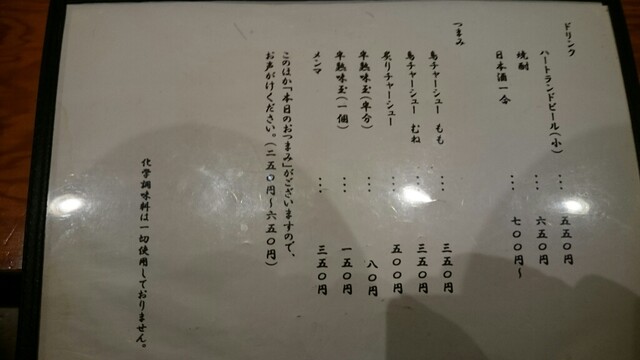 ドリンク
ハートランドビール(小) … 五五〇円
焼酎 … 六五〇円
日本酒一合 … 七〇〇円～
つまみ
鳥チャーシュー もも … 三五〇円
鳥チャーシュー むね … 三五〇円
炙りチャーシュー … 五〇〇円
半熟味玉(半分) … 八〇円
半熟味玉(一個) … 一五〇円
メンマ … 三五〇円
このほか「本日のおつまみ」がございますので、
お声がけください。(二五〇円～六五〇円)
化学調味料は一切使用しておりません。